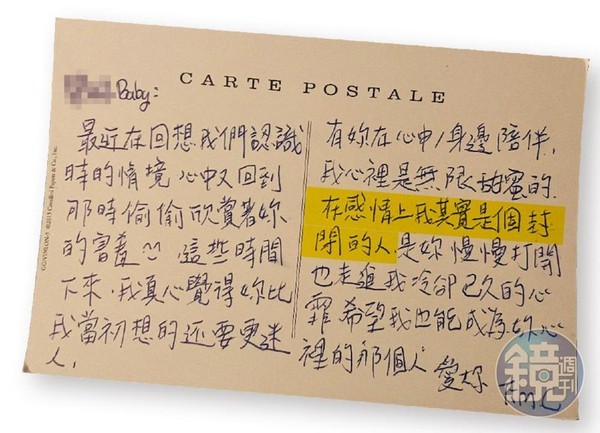 CARTE POSTALE
Baby:
最近在回想我們認識
時的情境 心中又回到
那時偷偷欣賞著妳
的害羞 這些時間
下來,我真心覺得妳比
我當初想的還要更迷
人,
有妳在心中/身邊陪伴,
我心裡是無限甜蜜的.
在感情上我其實是個封
閉的人,是妳慢慢打開
也走進我冷卻已久的心
霏 希望我也能成為妳心
裡的那個人 愛妳
鏡週刊